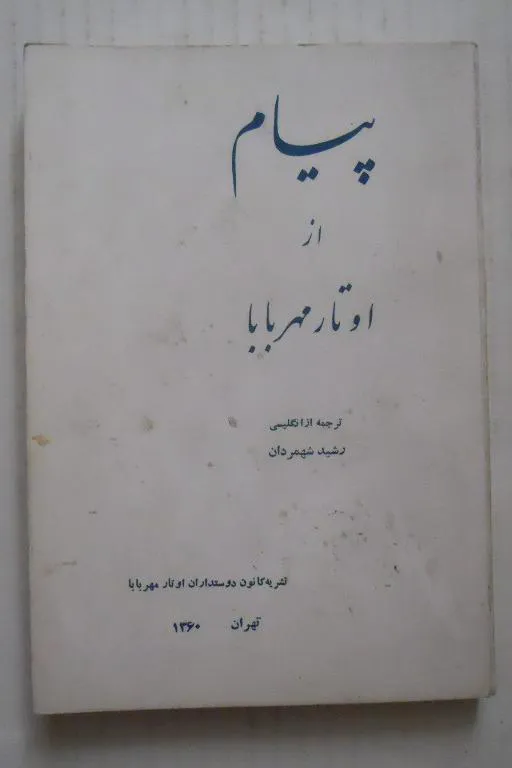 پیام
از
اوتار مهربابا
ترجمه از انگلیسی
رشید شهمردان
نشریه کانون دوستداران اوتار مهربابا
تهران ۱۳۶۰